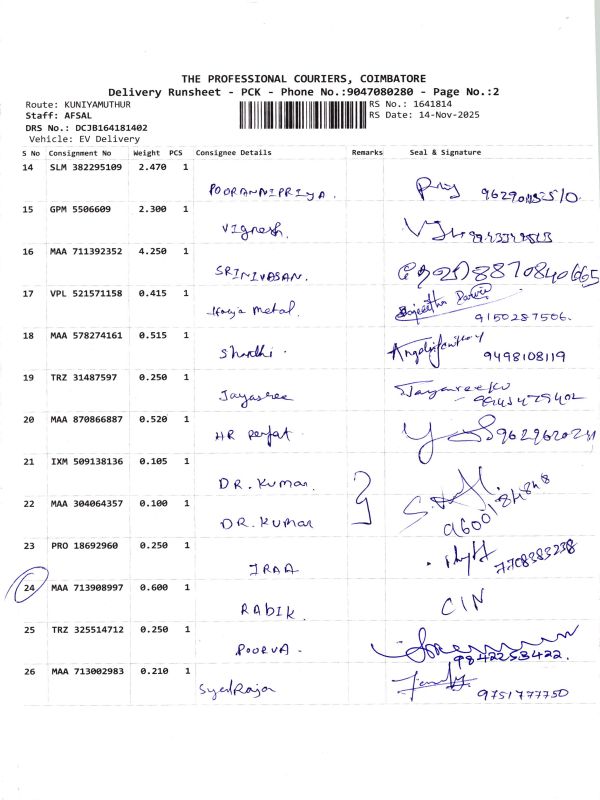 THE PROFESSIONAL COURIERS, COIMBATORE
Delivery Runsheet - PCK - Phone No.:9047080280 - Page No.:2
Route: KUNIYAMUTHUR RS No.: 1641814
Staff: AFSAL RS Date: 14-Nov-2025
DRS No.: DCJB164181402
Vehicle: EV Delivery
S No Consignment No Weight PCS Consignee Details Remarks Seal & Signature
14 SLM 382295109 2.470 1
POORANNIPRIYA.
15 GPM 5506609 2.300 1
Vignesh.
16 MAA 711392352 4.250 1
SRINIVASAN. 8870840665
17 VPL 521571158 0.415 1
Metal. 9150287506.
18 MAA 578274161 0.515 1
Shardhi. 9498108119
19 TRZ 31487597 0.250 1
Jayasree
20 MAA 870866887 0.520 1
HR
21 IXM 509138136 0.105 1
DR. Kumar.
22 MAA 304064357 0.100 1
DR. Kumar
23 PRO 18692960 0.250 1
IRAA 7708383238
24 MAA 713908997 0.600 1
RABIK. CIN
25 TRZ 325514712 0.250 1
POORVA. 9842253422.
26 MAA 713002983 0.210 1
Syed Raja 9751777750